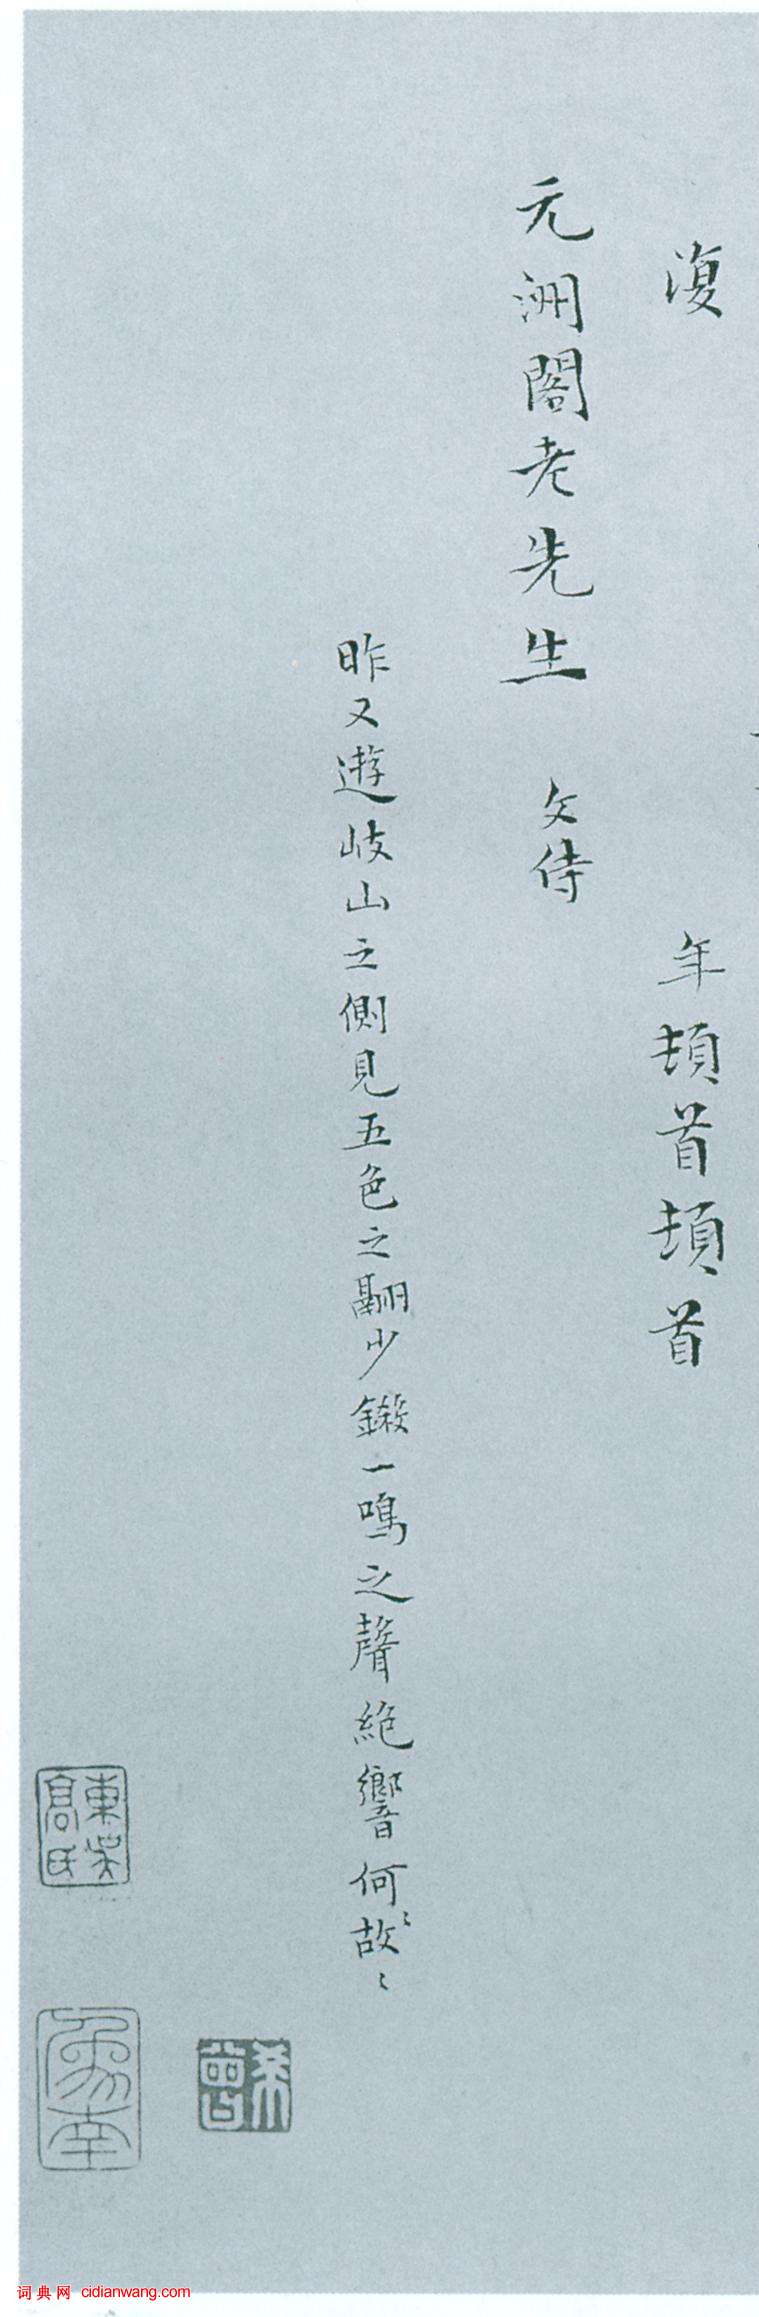 復
年頓首頓首
元洲閣老先生 文侍
昨又遊岐山之側見五色之翮少鎩一鳴之聲絶響何故〻〻
東吳
高氏
希
曾
詞典网 cidianwang.com